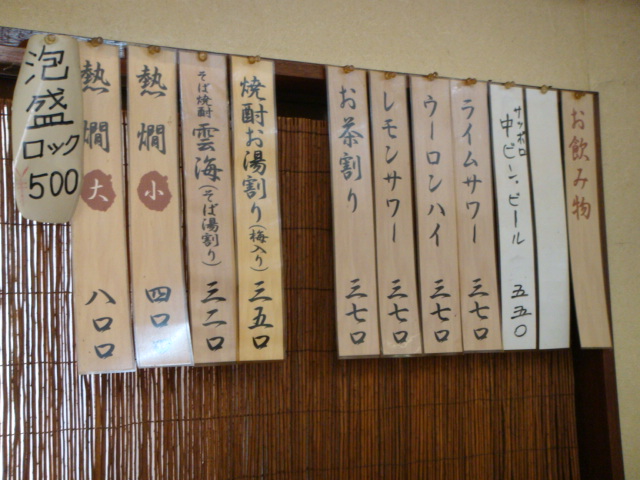 お飲み物
サッポロ
中ビン.ビール 五五〇
ライムサワー 三七〇
ウーロンハイ 三七〇
レモンサワー 三七〇
お茶割り 三七〇
焼酎お湯割り(梅入り) 三五〇
そば焼酎 雲海(そば湯割り) 三二〇
熱燗 小 四〇
熱燗 大 八〇〇
泡盛
ロック
500